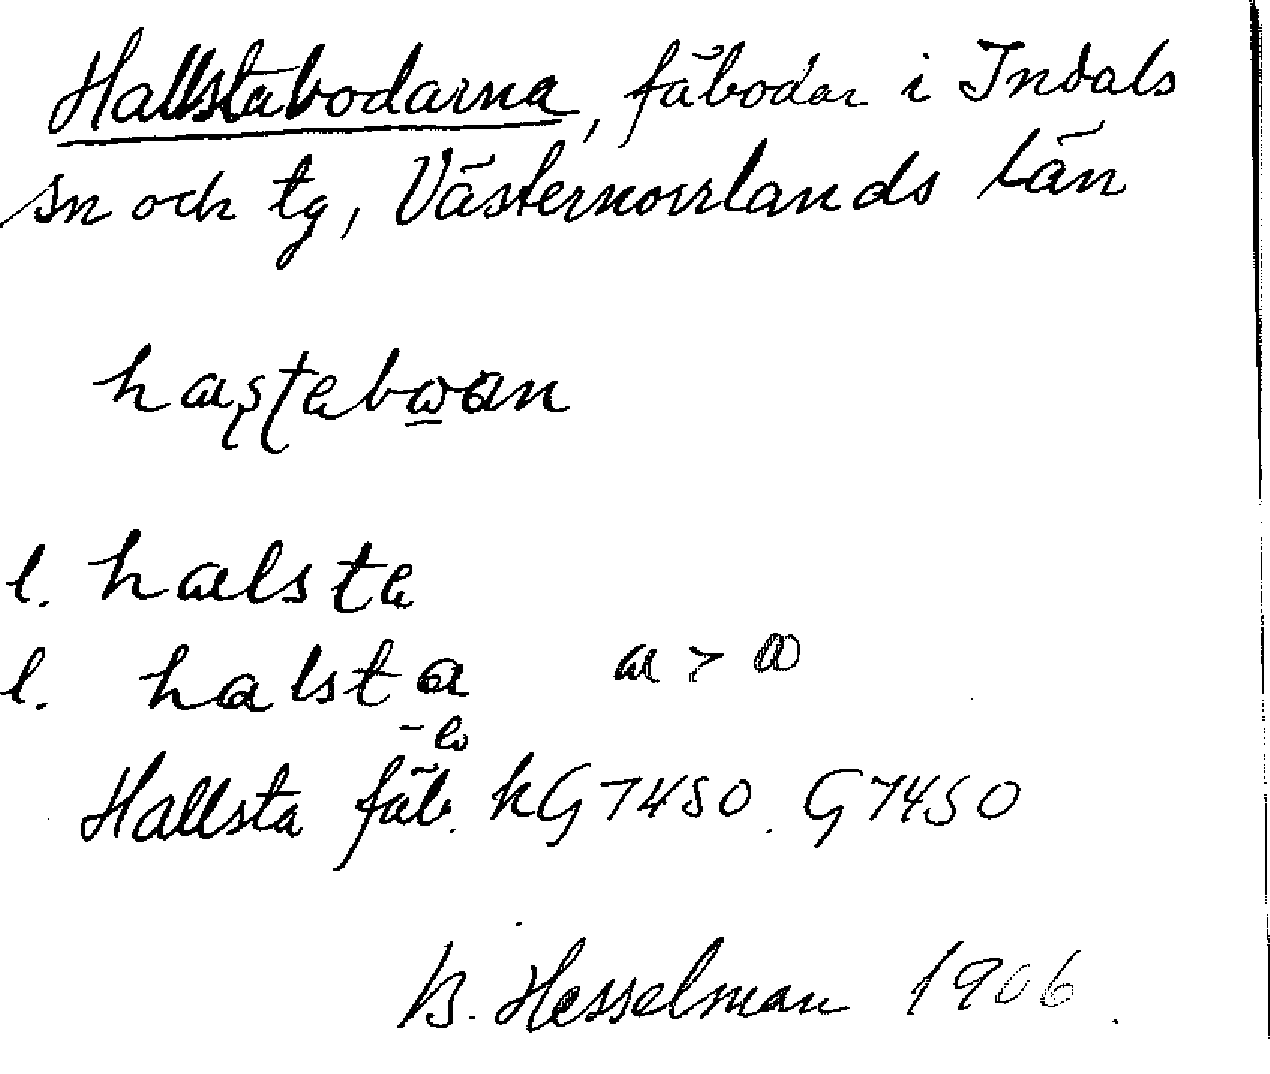 Hallstabodarna, fäbodar i Indals
sn och tg, Västernorrlands län
l. halsta
l. halsta a > ω
Hallsta fäb. kG7450. G7450
B. Hesselman 1906.